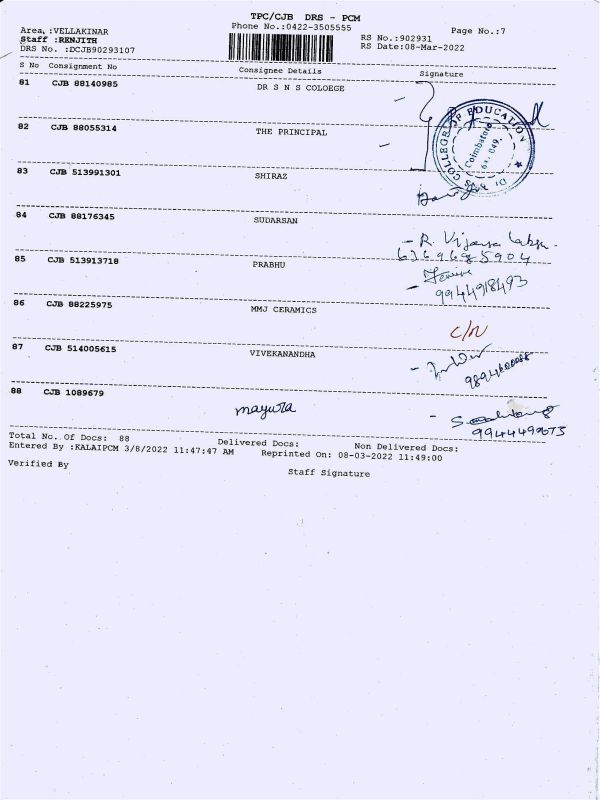 TPC/CJB DRS - PCM
Area :VELLAKINAR Phone No.:0422-3505555 Page No.:7
Staff :RENJITH RS No.:902931
DRS No. :DCJB90293107 RS Date:08-Mar-2022
S No Consignment No Consignee Details Signature
81 CJB 88140985 DR S N S COLOEGE
COLLEGE OF EDUCATION
Coimbatore
82 CJB 88055314 THE PRINCIPAL
83 CJB 513991301 SHIRAZ
84 CJB 88176345 SUDARSAN
- R. Vijaya
6369685904
85 CJB 513913718 PRABHU
9944918493
86 CJB 88225975 MMJ CERAMICS
C/N
87 CJB 514005615 VIVEKANANDHA
88 CJB 1089679
mayura
Total No. Of Docs: 88 Delivered Docs: Non Delivered Docs:
Entered By :KALAIPCM 3/8/2022 11:47:47 AM Reprinted On: 08-03-2022 11:49:00
Verified By Staff Signature